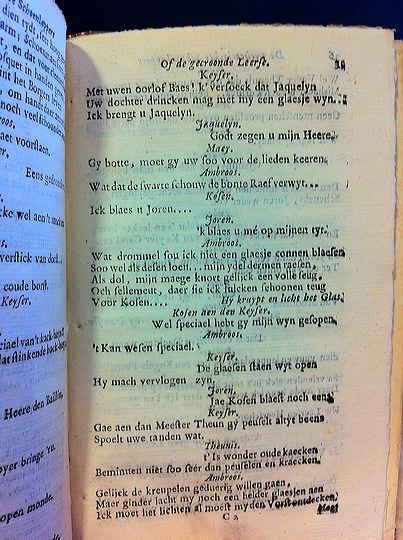 Of de gecroonde Leerse.
Keyser.
Met uwen oorlof Baes! k'versoeck dat Jaquelyn
Uw dochter drincken mag met my een glaesje wyn.
Ick brengt u Jaquelyn.
Jaquelyn.
Godt zegen u mijn Heere.
Maey.
Gy botte, moet gy uw soo voor de lieden keeren.
Ambroos.
Wat dat de swarte schouw de bonte Raef verwyt...
Kosen.
Ick blaes u Joren....
Joren.
'k blaes u mé op mijnen tyt.
Ambroos.
Wat drommel sou ick niet een glaesje connen blaesen
Soo wel als desen loer... mijn ydel dermen raesen,
Als dol, mijn maege knort gelijck een volle seug,
Och sellement, daer sie ick sulcken schoonen teug
Voor Kosen.... Hy kruypt en licht het Glas.
Kosen aen den Keyser.
Wel speciael hebt gy mijn wyn gesopen.
Ambroos.
't Kan wesen speciael.
Keyser.
De glaesen staen wyt open
Hy mach vervlogen zyn.
Joren.
Jae Kosen blaest noch eens.
Keyser.
Gae aen dan Meester Theun gy peuselt altyt beens
Spoelt uwe tanden wat.
Theunis.
t'Is wonder oude kaecken
Beminnen niet soo seer dan peuselen en kraecken.
Ambroos.
Gelijck de kreupelen geduerig willen gaen,
Maer ginder lacht my noch een helder glaesjen aen
Ick moet het lichten al moest my den Vorst ontdecken,
C 2
Maey
en dat voor
Ambroos.
aet voorstaen.
Eens
coude borst.
Keyser.
Heere den Bailliu,
oyer bringe 'ru.
open monde.